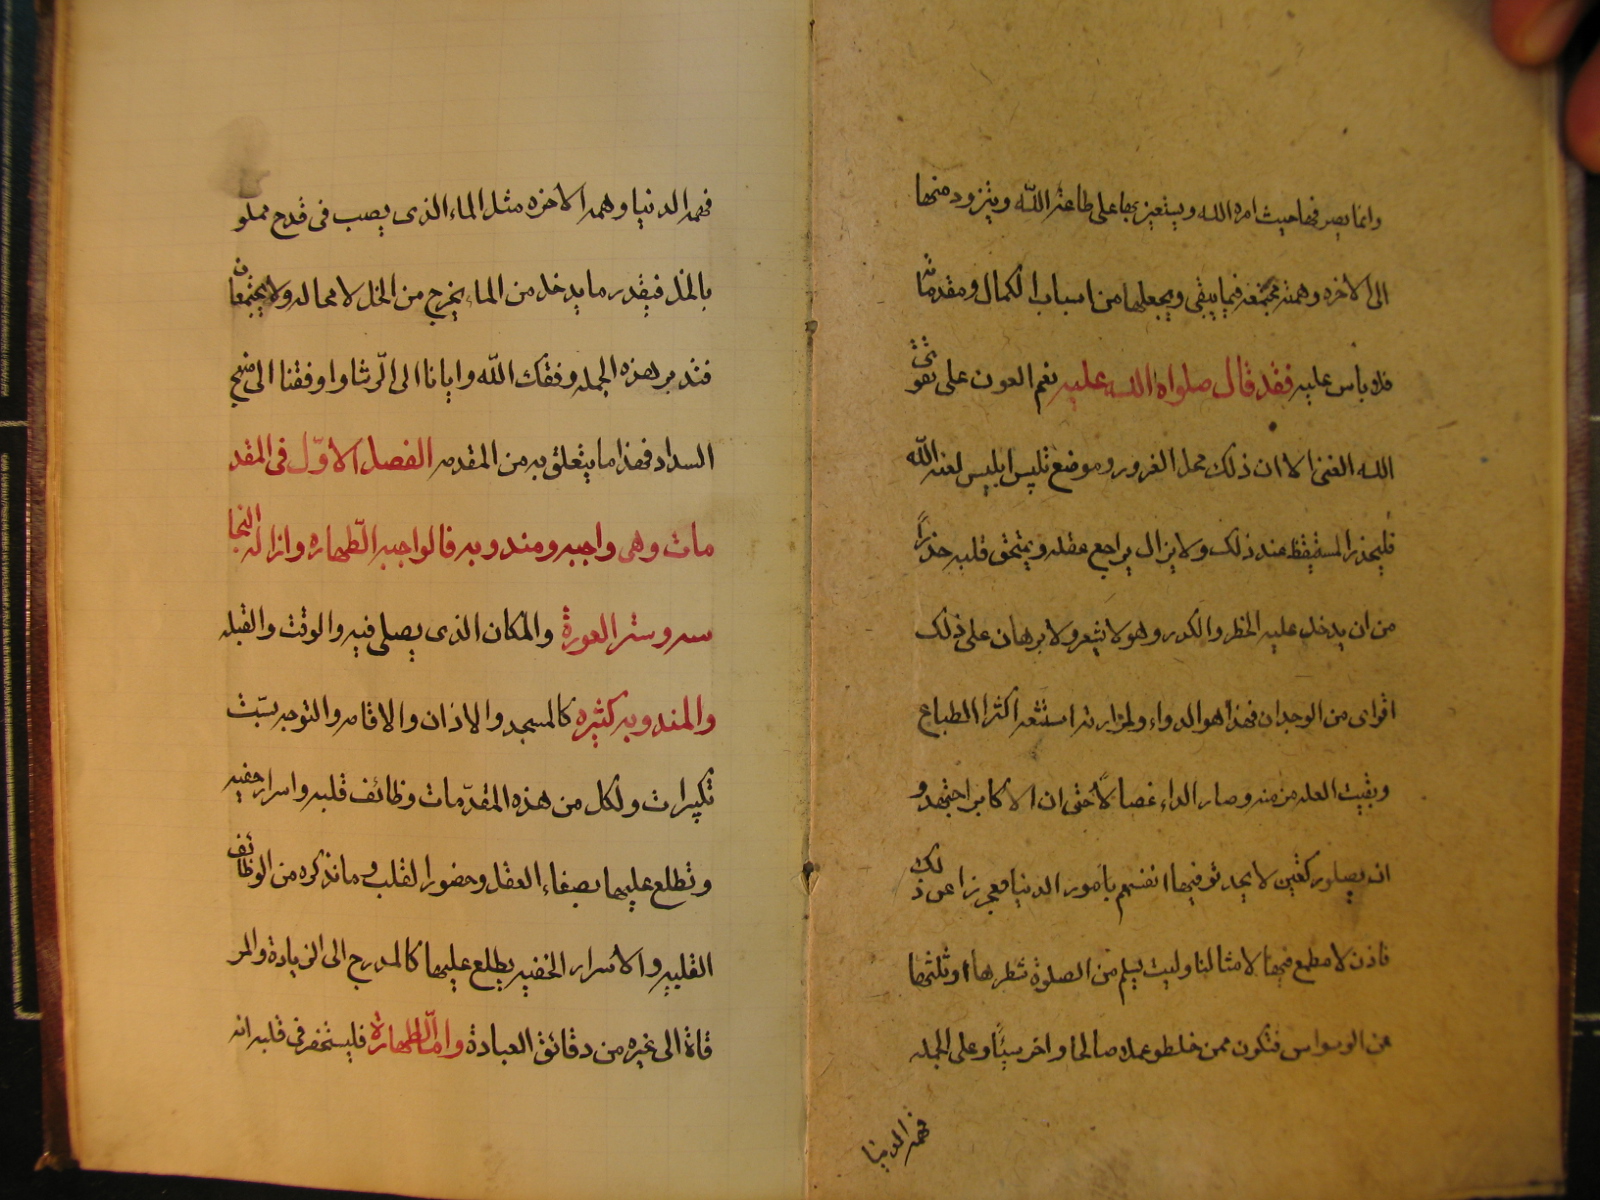 وانما يصرفها حيث امره الله ويستعين بها على طاعة الله ويتزود منها
الى الاخره وهمته مجتمعه فيما يبقى ويجعلها من اسباب الكمال ومقدماته
فلا باس عليه فقد قال صلواة الله عليه نعم العون على تقوى
الله الغنى الا ان ذلك محل الغرور وموضع تلبيس ابليس لعنه الله
فليحذر المستيقظ عند ذلك ولا يزال يراجع عقله ويمتحن قلبه حذراً
من ان يدخل عليه الخطر والكدر وهو لا يشعر ولا برهان على ذلك
اقواى من الوجدان فهذا هو الدواء ولمرارته استبشعه اكثر الطباع
وبقيت العله مزمنه وصار الداء عضالاً حتى ان الاكابر اجتهدو
ان يصلو ركعتين لا يحدثو فيها انفسهم بامور الدنيا فعجزا عن ذلك
فاذن لا مطمع فيها لامثالنا وليت يسلم من الصلوة شطرها او ثلثها
من الوسواس فنكون ممن خلطو عملا صالحا واخر سيئاً وعلى الجمله
فهمه الدنيا
فهمه الدنيا وهمه الاخره مثل الماء الذى يصب فى قدح مملو
بالخل فبقدر ما يدخل من الماء يخرج من الخل لا محاله ولا يجتمعان
فتدبر هذه الجمله وفقك الله وايانا الى الرشاد ووفقنا الى منهج
السداد فهذا ما يتعلق به من المقدمه الفصل الاوّل فى المقد
مات وهى واجبه ومندوبه فالواجبه الطهاره وازاله النجا
سه وستر العورة والمكان الذى يصلى فيه والوقت والقبله
والمندوبه كثيره كالمسجد والاذان والاقامه والتوجه بستّ
تكبيرات ولكل من هذه المقدّمات وظائف قلبيه واسرار خفيه
وتطلع عليها بصفاء العقل وحضور القلب وما نذكره من الوظائف
القلبيه والاسرار الخفيه يطلع عليها كالمدرج الى الزيادة والمر
قاة الى غيره من دقائق العبادة وامّا الطهارة فليستحضر فى قلبه انه